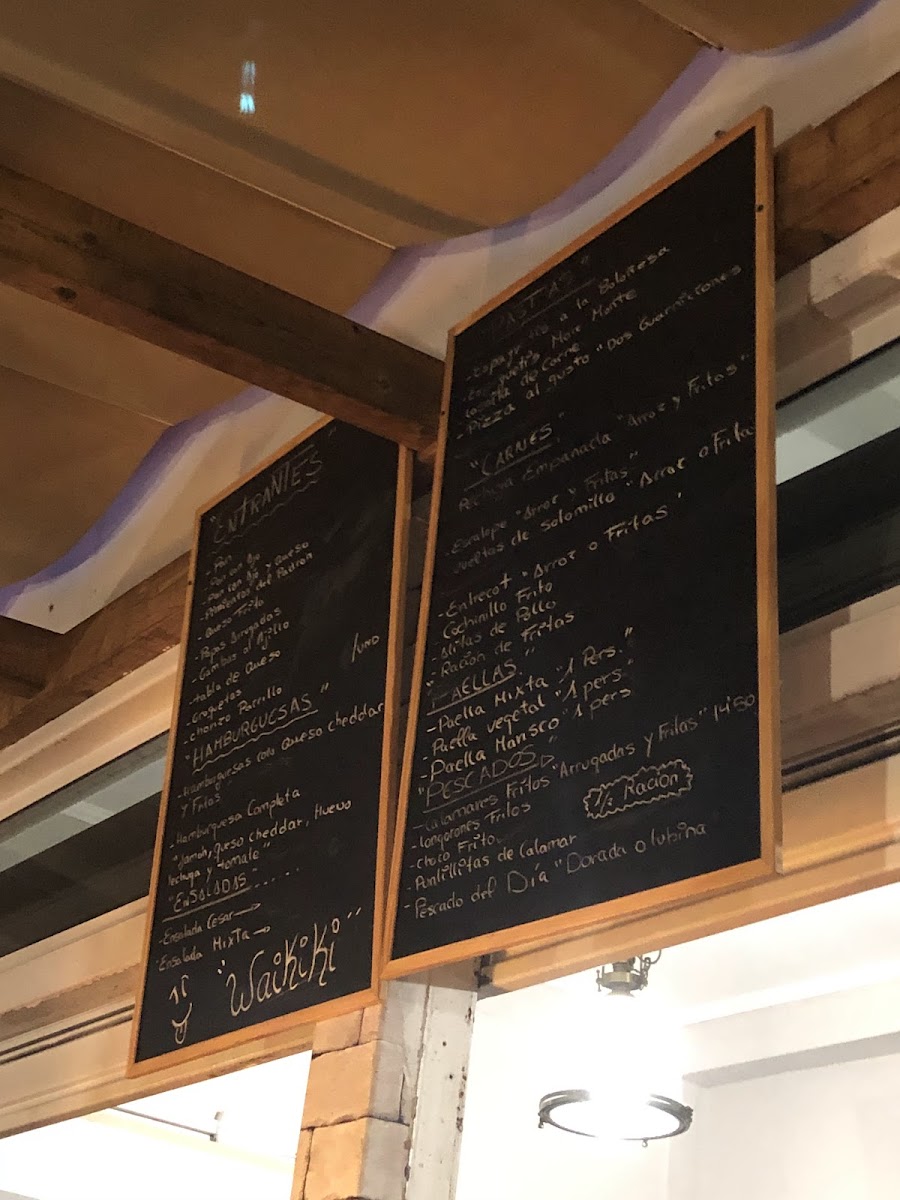 "ENTRANTES"
- Pan
- Pan con Ajo
- Pan con Ajo y Queso
- Pimientos del Padron
- Queso Frito
- Papas Arrugadas
- Gambas al Ajillo
- tabla de Queso
- Croquetas /UNID
- Chorizo Parrillo
"HAMBURGUESAS"
- Hamburguesas con Queso cheddar
y Fritas
- Hamburguesa Completa
"Jamon, queso cheddar, Huevo
lechuga y tomate"
"ENSALADAS".....
- Ensalada Cesar
- Ensalada Mixta
"Waikiki"
PASTAS"
- Espaguetis a la Boloñesa
- Espaguetis Mair Monte
- Lasaña de Carne
- Pizza al gusto "Dos Guarniciones
"CARNES"
Pechuga Empanada "Arroz y Fritas"
- Escalope "Arroz y Fritas"
- Vueltas de Solomillo "Arroz o Fritas
- Entrecot "Arroz o Fritas"
- Cochinillo Frito
- Alitas de Pollo
- Ración de Fritas
"PAELLAS"
- Paella Mixta "1 Pers."
- Paella vegetal "1 pers"
- Paella Marisco "1 pers
"PESCADOS"
- Calamares Fritos "Arrugadas y Fritas" 14'50
- Longorones Fritos
1/2 Ración
- Choco Frito
- Puntillitas de Calamar
- Pescado del Día "Dorada o lubina